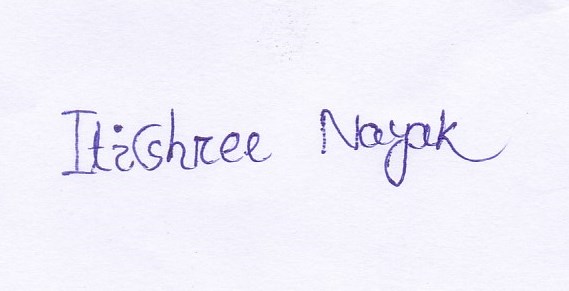 Itishree Nayak